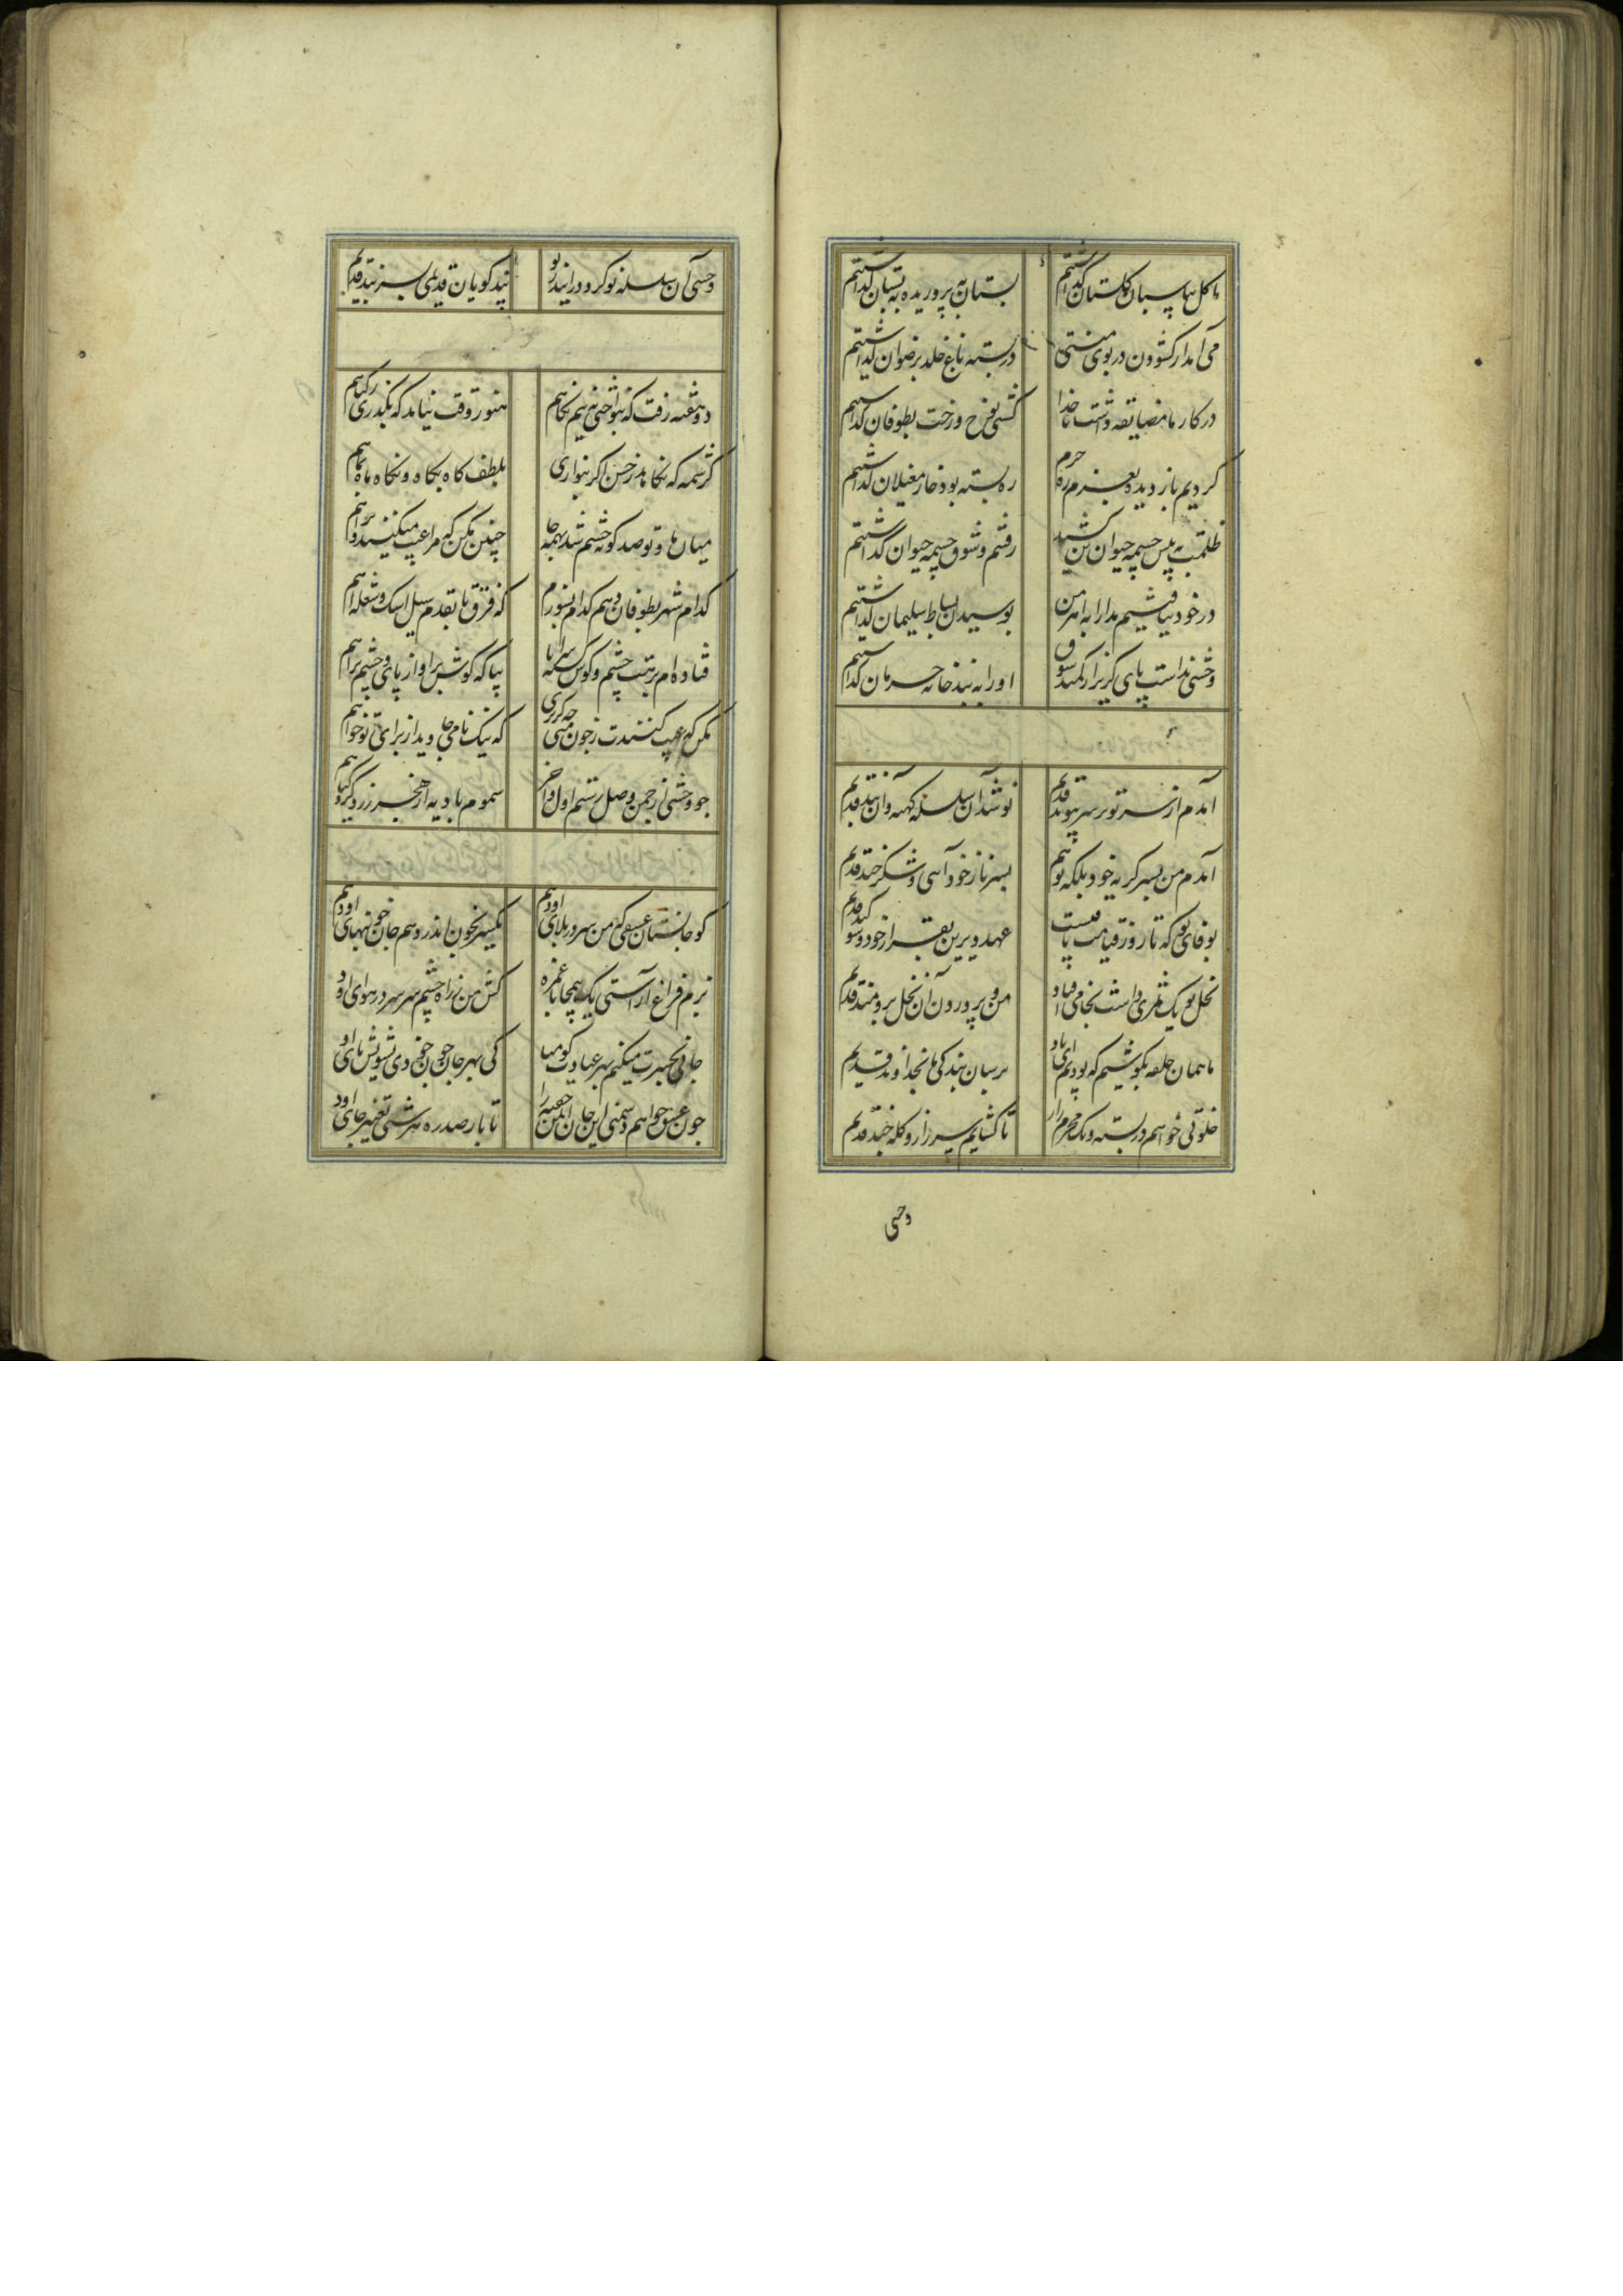 ما گل بپاسبان گلستان گذاشتیم بستان به پروریده به بستان گذاشتیم
می آمد ار گشودن در بوی منتی در بسته باغ خلد برضوان گذاشتیم
در کار ما مضایقه داشت ناخدا کشتی بنوح و رخت بطوفان گذاشتیم
کردیم باز دیده بعزم ره حرم ره بسته بود خار مغیلان گذاشتیم
ظلمت به پیش چشمه حیوان رفتیم و شوق چشمه حیوان گذاشتیم
در خود نیافتیم مدارا به اهرمن بوسیدن بساط سلیمان گذاشتیم
وحشی نداشت پای گریز از کمند شوق او را به بند خانه حرمان گذاشتیم
آمدم از سر نو بر سر پیوند قدیم نو شد آن سلسله کهنه و آن بند قدیم
آمدم من بسر گریه خود بلکه تو هم بسر ناز خود آیی و شکرخند قدیم
بوفای تو که تا روز قیامت باقیست عهد دیرین بقرار خود و سوگند قدیم
نخل تو یک ثمری داشت بخامی افتاد من و پروردن آن نخل برومند قدیم
ما همان حلقه بگوشیم که بودیم بر سان بندگی ما بخداوند قدیم
خلوتی خواهم و در بسته و یک محرم راز تا گشایم سر راز و گله چند قدیم
وحشی
وحشی آن سلسله نو کرد پندگویان قدیمی بسر پند قدیم
دو هفته رفت که ننواختی بنیم نگاهم هنوز وقت نیامد که بگذری ز گناهم
کرشمه که نکاهد ز حسن اگر بنوازی بلطف گاه بگاه و نگاه ماه بماهم
میان ما و تو صد گونه خشم شد بهمه جا چنین مکن که مرا عیب میکنند و ترا هم
کدام شهر بطوفان دهم کدام بسوزم که فرق تا بقدم سیل اشک و شعله آهم
فتاده ام برهت چشم و گوش گشته سراپا بیا که گوش بر آواز پای و چشم براهم
مکن که عیب کنندت ز چون منی چو گریزی که نیک نامی جاوید از برای تو خواهم
چو وحشی از چمن وصل رستم اول و آخر سموم بادیه از بخت زرد گیاهم
کو جانستان عشقی که من سر در بلای او دهم یکسر بخون اندر دهم جان خونبهای او دهم
نرم فراغ آراستی یک بابا غمزه کش من ز راه چشم سر در هوای او
جانی بحسرت میکنم بهر عیادت گو میا کی بهر جان خود دهم تشویش پای او
چون عشق خواهم دشمنی این جان ایمن خفته را تا بار صد ره هر شبی تغییر جای او دهم